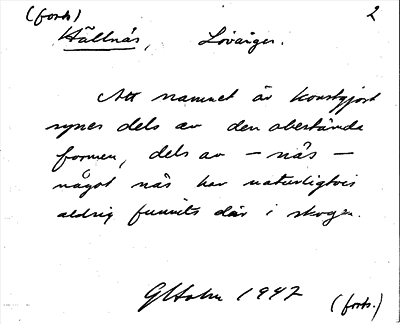 (forts) 2
Hällnäs, Lövånger.
Att namnet är konstgjort
synes dels av den obestämda
formen, dels av — näs —
något näs har naturligtvis
aldrig funnits där i skogen.
GHolm 1947 (forts.)